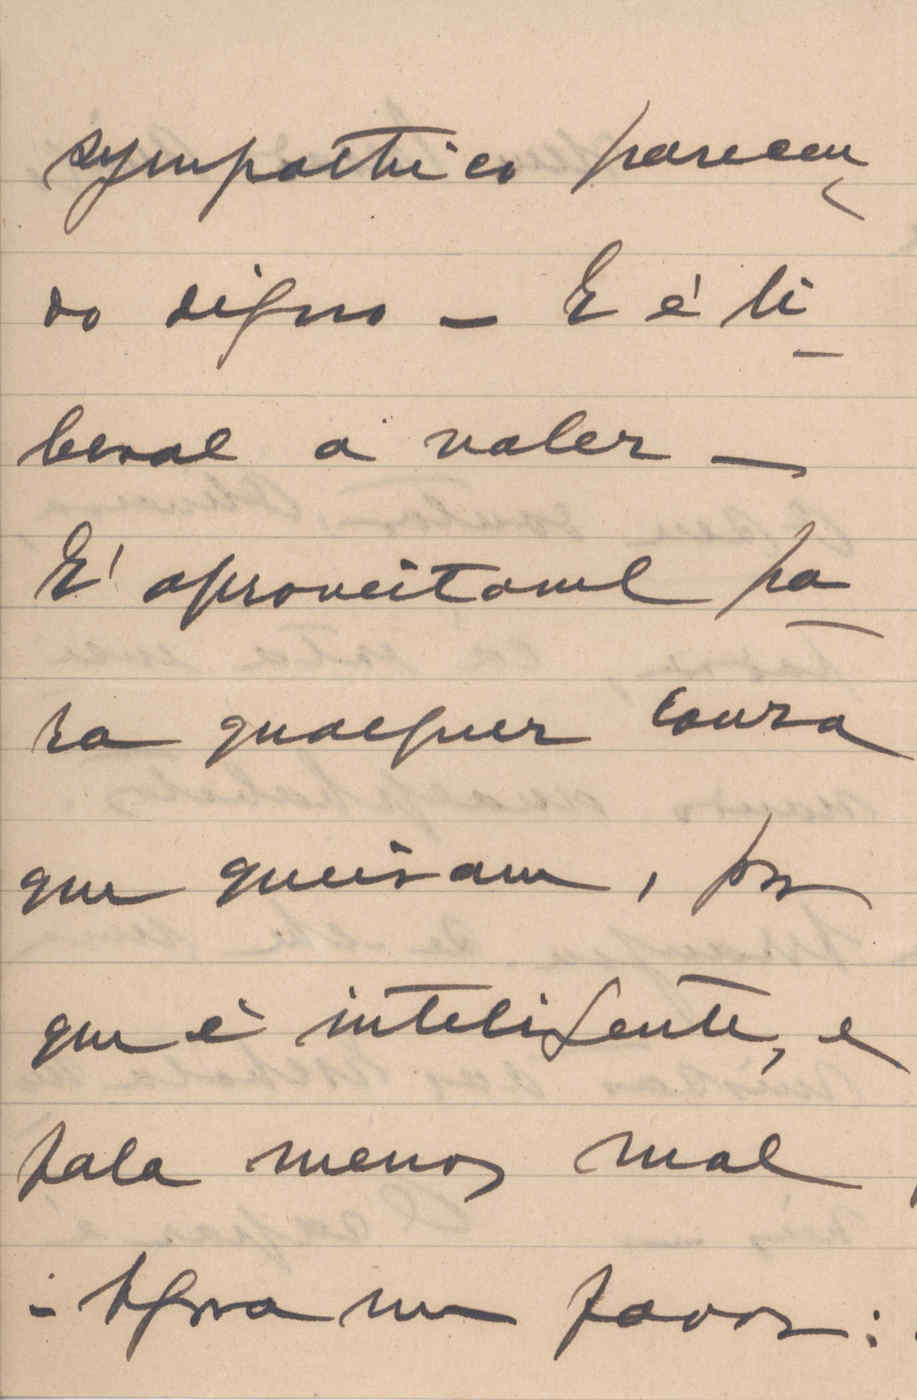 sympathico parecen
do digno — E é li
beral a valer —
E' aproveitavel pa
ra qualquer cousa
que queiram, por
que é inteligente, e
fala menos mal,
- Agora um favor: